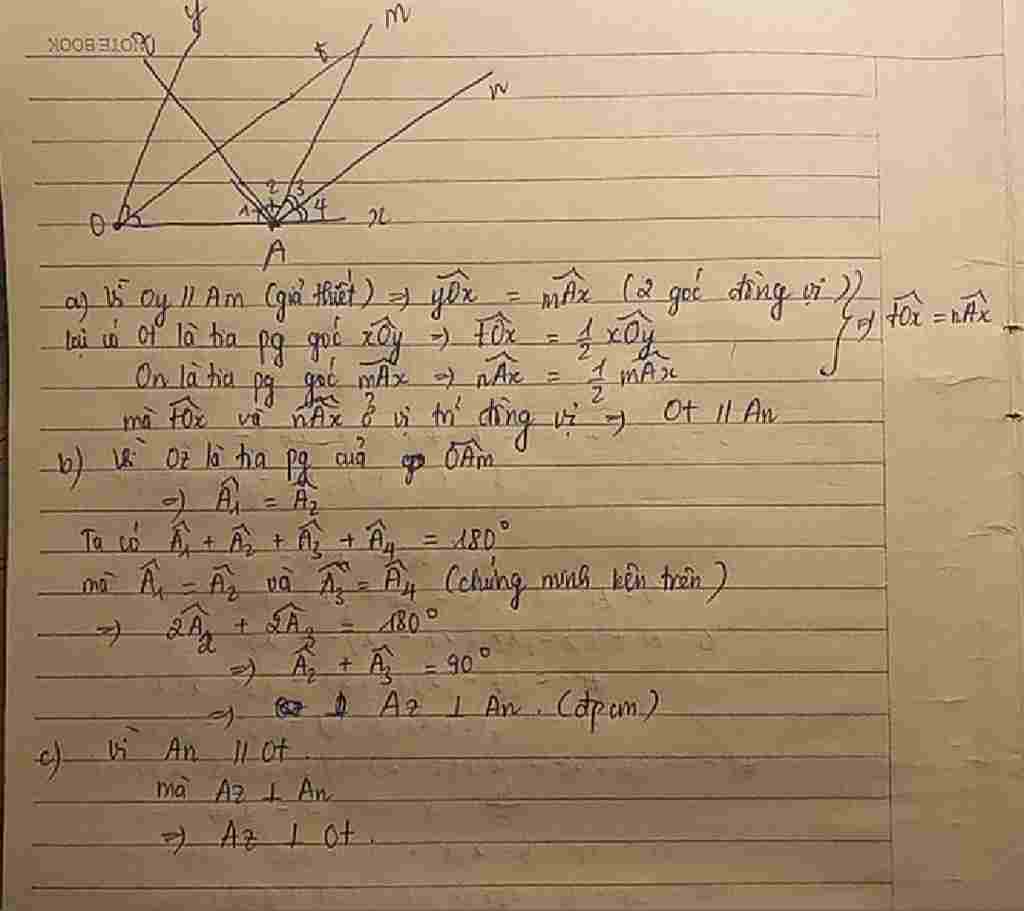 NOTEBOOK
y
m
t
z
n
2 3
1 4
O
x
A
a) Vì Oy // Am (giả thiết) => yOx̂ = mAx̂ (2 góc đồng vị)
lại có Ot là tia pg góc xOŷ => tOx̂ = 1/2 xOŷ
=> tOx̂ = nAx̂
On là tia pg góc mAx̂ => nAx̂ = 1/2 mAx̂
mà tOx̂ và nAx̂ ở vị trí đồng vị => Ot // An
b) Vì Oz là tia pg của OAm̂
=> Â1 = Â2
Ta có Â1 + Â2 + Â3 + Â4 = 180°
mà Â1 = Â2 và Â3 = Â4 (chứng minh bên trên)
=> 2Â2 + 2Â3 = 180°
=> Â2 + Â3 = 90°
=> Az ⊥ An. (đpcm)
c) Vì An // Ot
mà Az ⊥ An
=> Az ⊥ Ot.